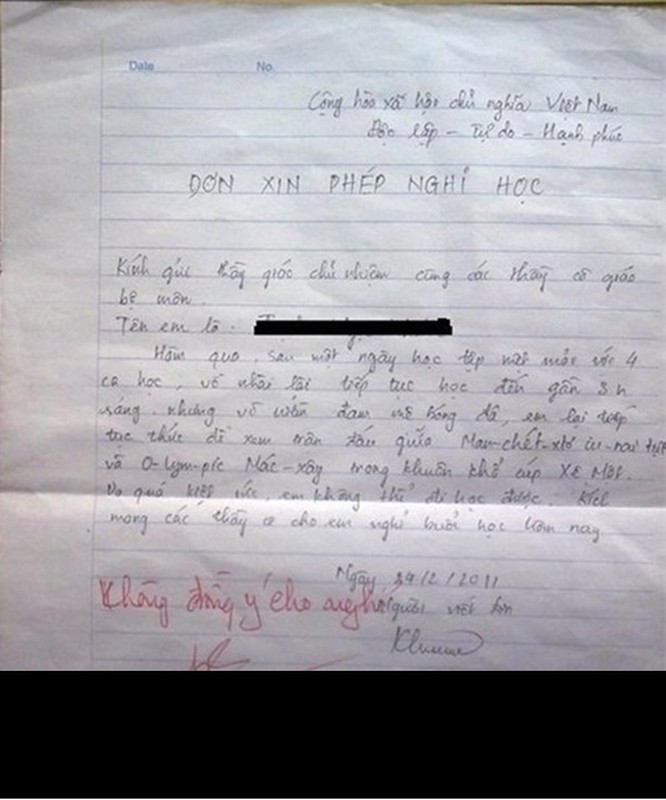 Date No.
Cộng hòa xã hội chủ nghĩa Việt Nam
Độc lập - Tự do - Hạnh phúc
ĐƠN XIN PHÉP NGHỈ HỌC
Kính gửi thầy giáo chủ nhiệm cùng các thầy cô giáo
bộ môn.
Tên em là:
Hôm qua, sau một ngày học tập mệt mỏi với 4
ca học, về nhà lại tiếp tục học đến gần 3h
sáng. nhưng vì đam mê bóng đá, em lại tiếp
tục thức để xem trận đấu giữa Man-chét-xtơ iu-nai-tựt
và O-lym-píc Mác-xây trong khuôn khổ cúp Xê Một.
Do quá kiệt sức, em không thể đi học được. Kính
mong các thầy cô cho em nghỉ buổi học hôm nay.
Ngày 24/2/2011
Người viết đơn
Không đồng ý cho nghỉ